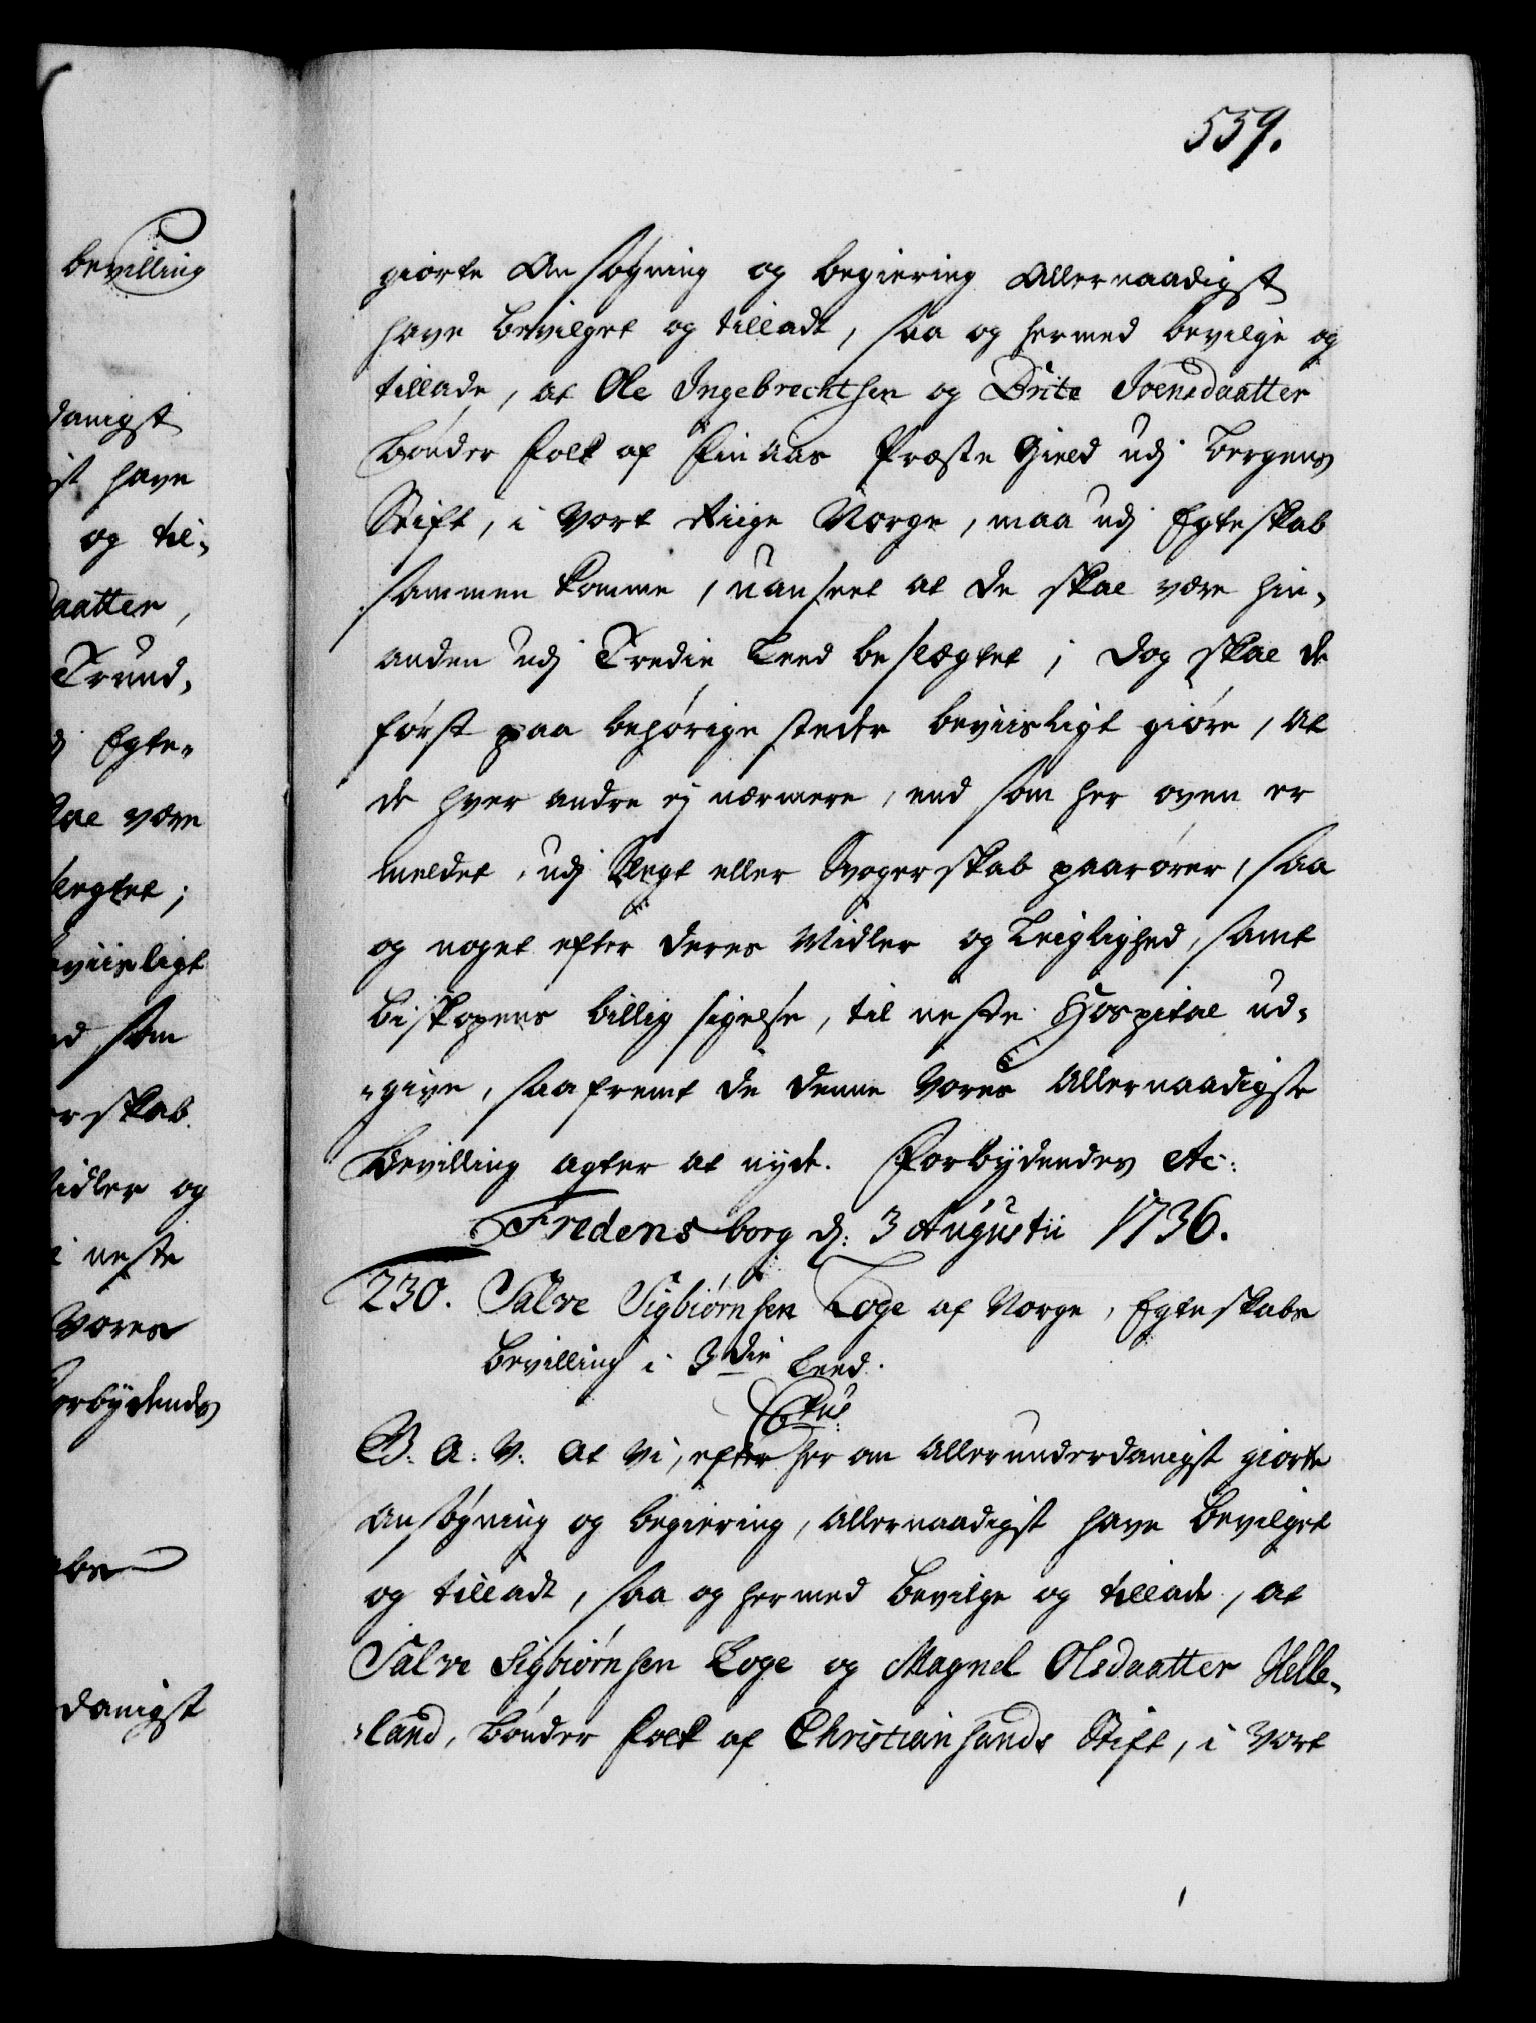 559.
bevilling
danigst
st have
og til-
daatter,
Trund-
j Egte-
kal være
legtet;
eviisligt
nd som
erskab
idler og
neste
Vores
Forbydendes
danigst
giorte Ansøgning og begiering Allernaadigst
have bevilget og tilladt, saa og hermed bevilge og
tillade, at Ole Ingebrechtsen og Brite Joensdaatter
bønder folk af Finaas Præste Gield udj Bergens
Stift, i Vort Riige Norge, maa udj Egteskab
sammen komme, uanseet at de skal være hin-
anden udj Tredie Leed beslægtet; Dog skal de
først paa behørige stede beviisligt giøre, at
de hver andre ej nærmere, end som her oven er
meldet, udj Slegt eller Svogerskab paarører, saa
og noget efter deres Midler og Leiglighed, samt
Biskopens billig sigelse, til neste Hospital ud-
-give, saafremt de denne Vores Allernaadigste
Bevilling agter at nyde. Forbydendes etc:
Fredensborg d: 3 Augustii 1736.
230. Salve Sigbiørnsen Loge af Norge, Egteskabs
bevilling i 3die Leed.
G. A: V: At Vi, efter her om allerunderdanigst giorte
Ansøgning og begiering, Allernaadigst have bevilget
og tilladt, saa og hermed bevilge og tillade, at
Salve Sigbiørnsen Loge og Magnel Olsdaatter Helle-
-land, bønder folk af Christiansands Stift, i Vort